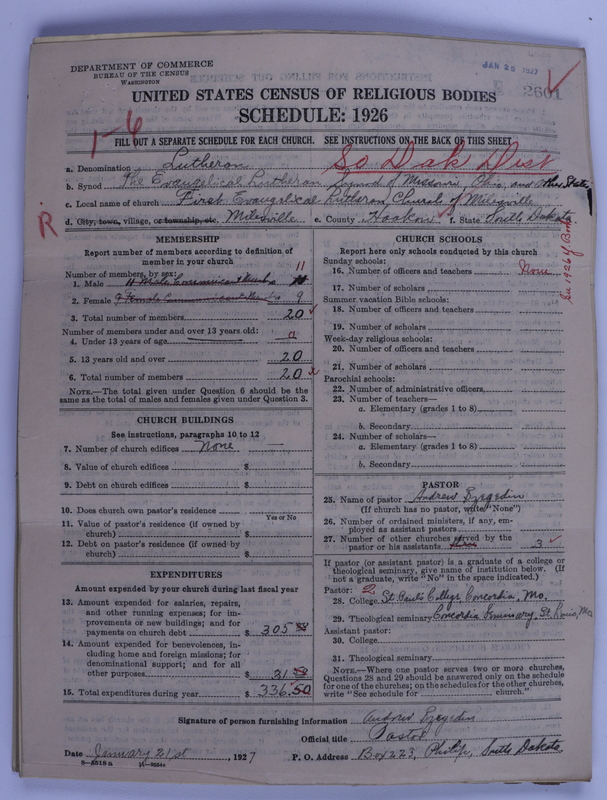 DEPARTMENT OF COMMERCE
BUREAU OF THE CENSUS
WASHINGTON
JAN 25 1927
2601
UNITED STATES CENSUS OF RELIGIOUS BODIES
SCHEDULE: 1926
1-6
FILL OUT A SEPARATE SCHEDULE FOR EACH CHURCH. SEE INSTRUCTIONS ON THE BACK OF THIS SHEET
a. Denomination Lutheran So Dak Dist
b. Synod The Evangelical Lutheran Synod of Missouri, Ohio, and other States
c. Local name of church First Evangelical Lutheran Church of Milesville
R
d. City, town, village, or township, etc. Milesville e. County Haakon f. State South Dakota
MEMBERSHIP
Report number of members according to definition of
member in your church
Number of members, by sex:
1. Male 11 Male Communicant Memb. 11
2. Female 9 Female Communicant Memb. 9
3. Total number of members 20
Number of members under and over 13 years old:
4. Under 13 years of age a
5. 13 years old and over 20
6. Total number of members 20 x
NOTE.—The total given under Question 6 should be the
same as the total of males and females given under Question 3.
CHURCH BUILDINGS
See instructions, paragraphs 10 to 12
7. Number of church edifices None —
8. Value of church edifices $
9. Debt on church edifices $
10. Does church own pastor's residence
Yes or No
11. Value of pastor's residence (if owned by
church) $
12. Debt on pastor's residence (if owned by
church) $
EXPENDITURES
Amount expended by your church during last fiscal year
13. Amount expended for salaries, repairs,
and other running expenses; for im-
provements or new buildings; and for
payments on church debt $ 305
14. Amount expended for benevolences, in-
cluding home and foreign missions; for
denominational support; and for all
other purposes $ 31
15. Total expenditures during year $ 336.50
CHURCH SCHOOLS
Report here only schools conducted by this church
Sunday schools:
16. Number of officers and teachers None
17. Number of scholars
Summer vacation Bible schools:
18. Number of officers and teachers
19. Number of scholars
Week-day religious schools:
20. Number of officers and teachers
21. Number of scholars
Parochial schools:
22. Number of administrative officers
23. Number of teachers—
a. Elementary (grades 1 to 8)
b. Secondary
24. Number of scholars—
a. Elementary (grades 1 to 8)
b. Secondary
PASTOR
25. Name of pastor Andrew
(If church has no pastor, write "None")
26. Number of ordained ministers, if any, em-
ployed as assistant pastors
27. Number of other churches served by the
pastor or his assistants 3
If pastor (or assistant pastor) is a graduate of a college or
theological seminary, give name of institution below. (If
not a graduate, write "No" in the space indicated.)
Pastor: 2
28. College St. Paul's College Concordia, Mo.
29. Theological seminary Concordia Seminary, St. Louis, Mo
Assistant pastor:
30. College
31. Theological seminary
NOTE.—Where one pastor serves two or more churches,
Questions 28 and 29 should be answered only on the schedule
for one of the churches; on the schedules for the other churches,
write "See schedule for church."
Signature of person furnishing information Andrew
Official title Pastor
Date January 21st, 1927 P. O. Address Box 223, Philip, South Dakota